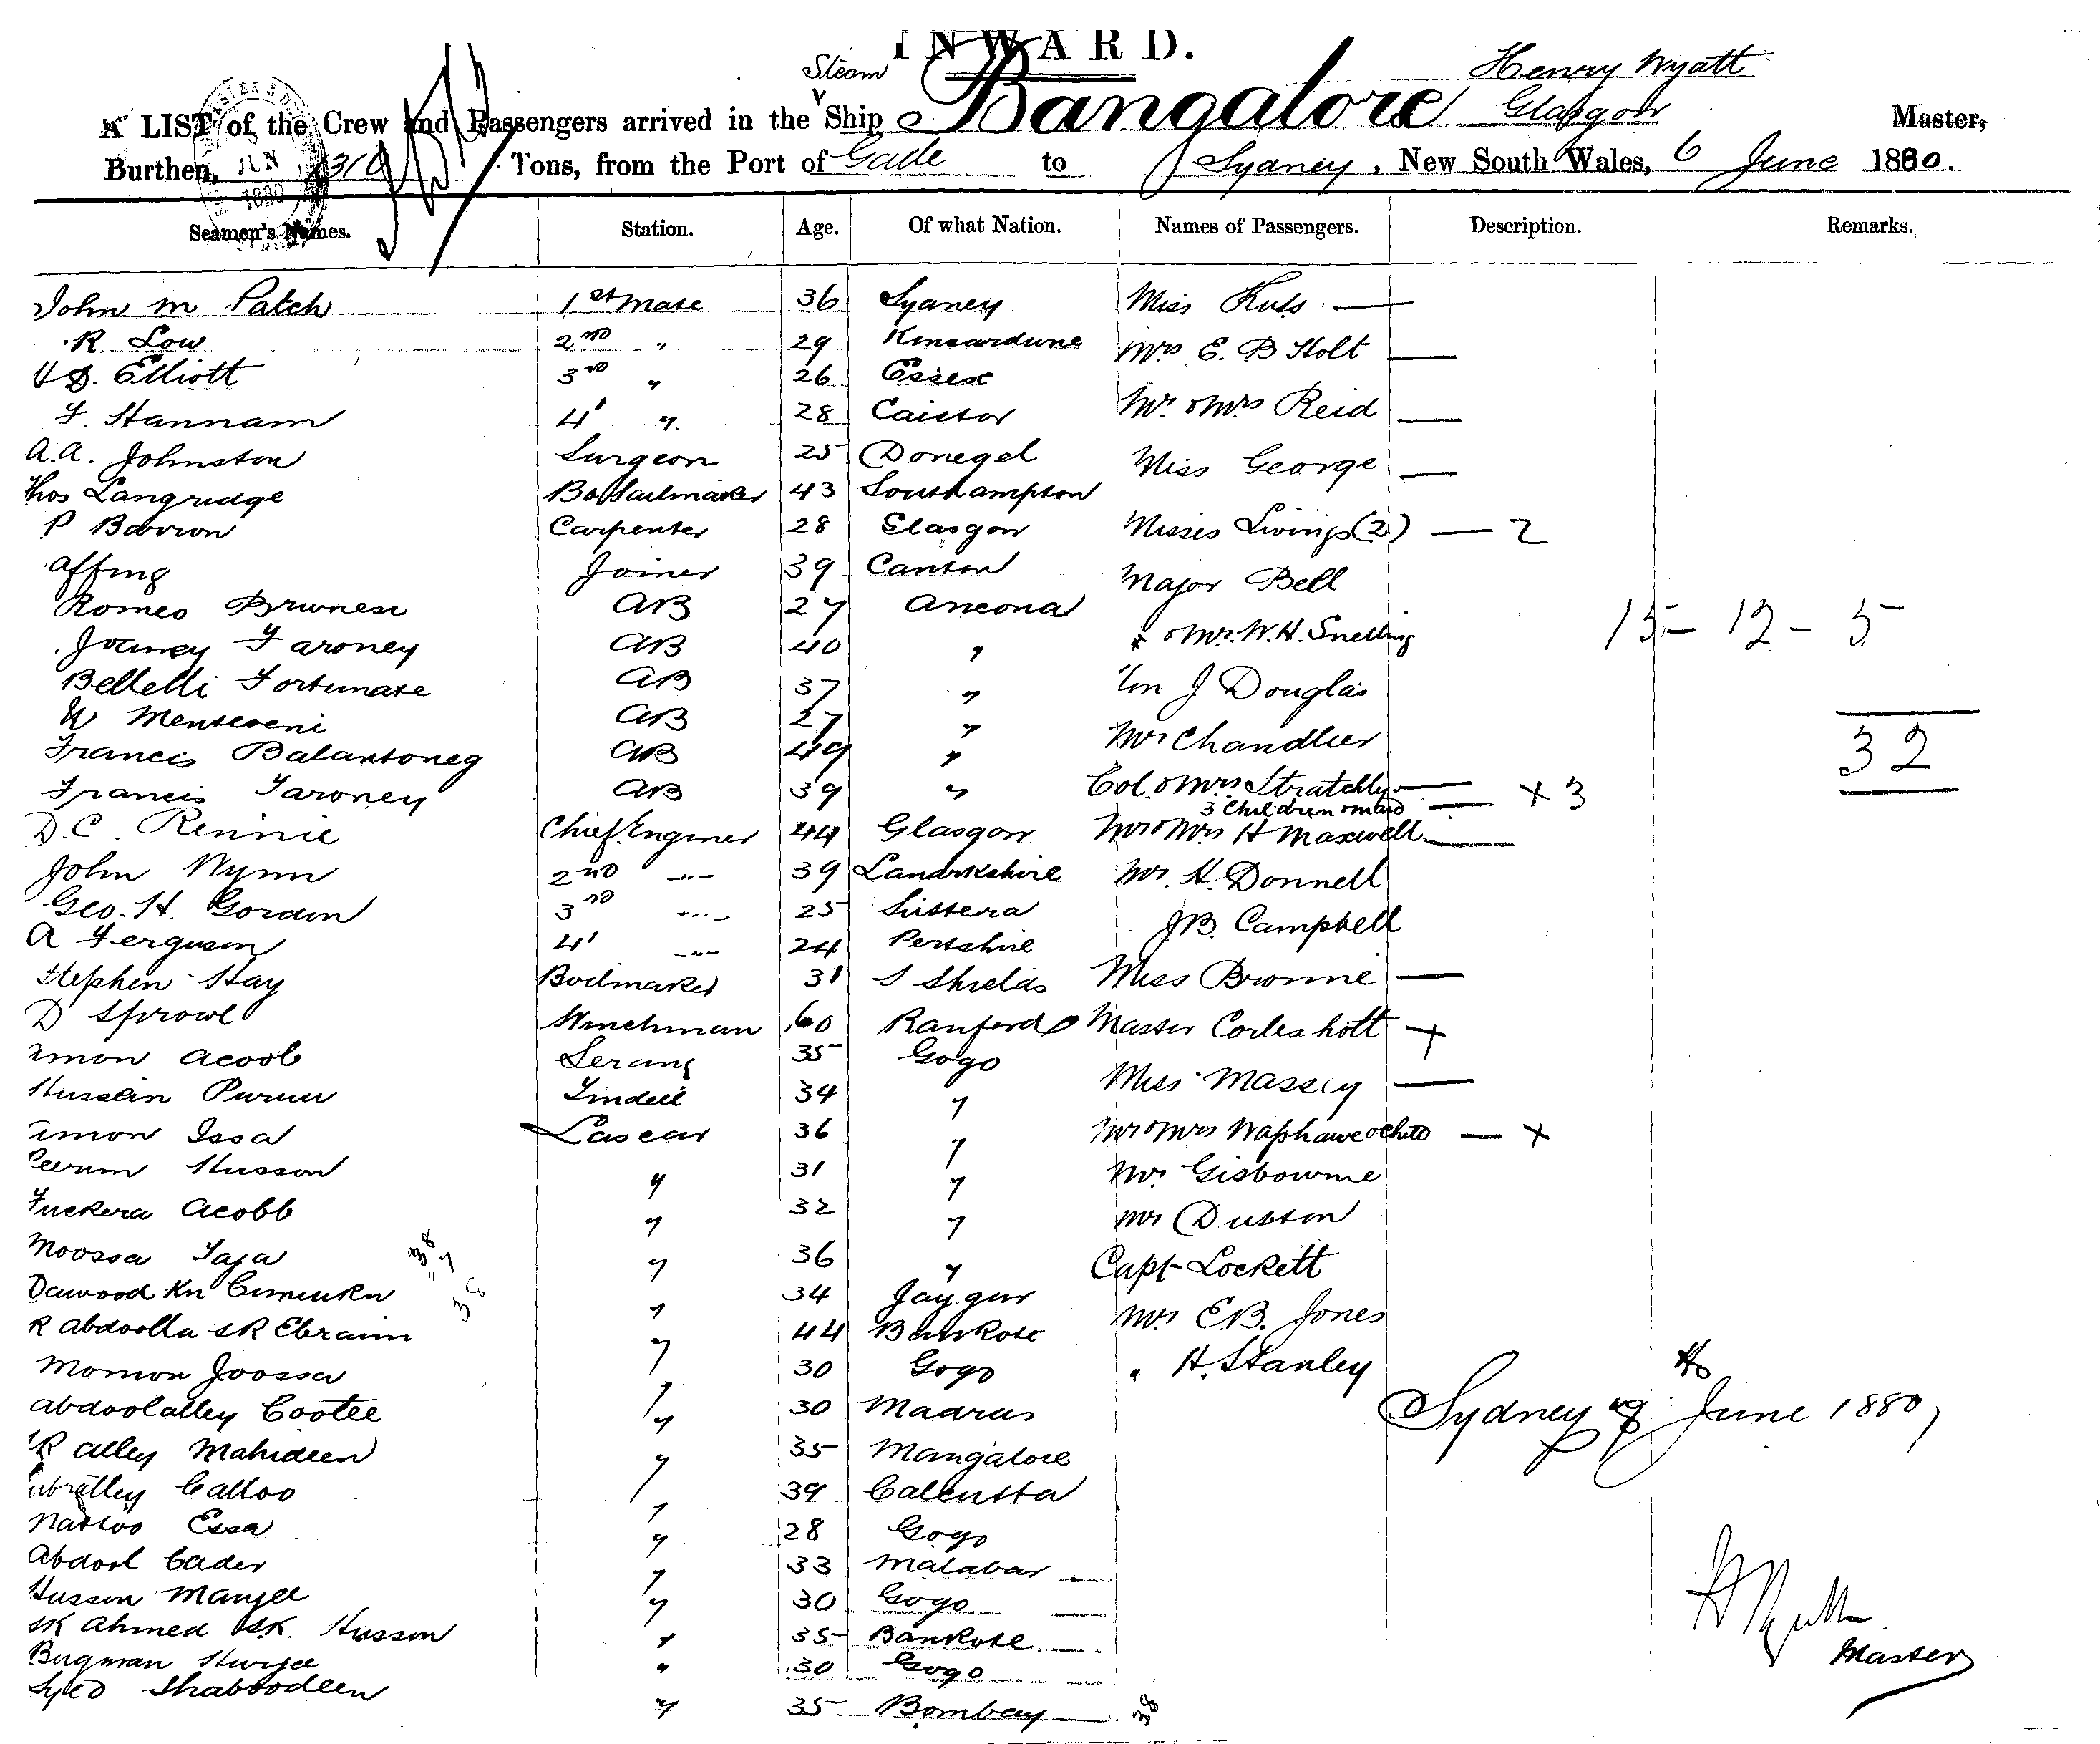 INWARD.
Steam
Henry Wyatt
A LIST of the Crew and Passengers arrived in the Ship Bangalore Glasgow Master,
Burthen, 1310 Tons, from the Port of Galle to Sydney, New South Wales, 6 June 1880.
JUN
1880
Seamen's Names. Station. Age. Of what Nation. Names of Passengers. Description. Remarks.
John M Patch 1st Mate 36 Sydney Miss Kuss —
R. Low 2nd " 29 Kincardine Mrs E. B Holt —
Elliott 3rd " 26 Essex
F. Hannam 4' " 28 Caistor Mr & Mrs Reid —
A.A. Johnston Surgeon 25 Donegel Miss George —
Thos Langridge Bo Sailmaker 43 Southampton
P Barron Carpenter 28 Glasgow Misses Livings (2) — 2
Affing Joiner 39 Canton Major Bell
Romeo Brunesi AB 27 Ancona
Faroney AB 40 " & Mr. W. H. Snelling
15 - 12 - 5
Belletti Fortunate AB 37 " Hon J Douglas
AB 27 " Mr Chandler
32
Francis Balantoneg AB 49 "
Francis Faroney AB 39 " Col. & Mrs Stratchly — × 3
3 Children & maid —
D. C. Rennie Chief Enginer 44 Glasgow Mr & Mrs H Maxwell —
John Wynn 2nd " 39 Lanarkshire Mr. H. Donnell
Geo. H. Gordon 3rd " 25 J.B. Campbell
A Ferguson 4' " 24 Pertshire
Stephen Hay Boilmaker 31 S Shields Miss Brownie —
D Sprowl Winchman 60 Ranford Master +
Acoob Serang 35 Gogo
Hussein Tindell 34 " Miss Massey —
Issa Lascar 36 " Mr & Mrs & Child — ×
Husson " 31 " Mr. Gisbourne
Fuckera Acobb " 32 " Mr Dutton
Moossa " 36 " Capt Lockett
38
Dawood Kn " 34 Jaygur Mr. E.B. Jones
38
Abdoolla SK Ebraim " 44 Bankote
Momon Joossa " 30 Gogo " H. Stanley
Abdoolalley Cootee " 30 Madras
Sydney June 1880
Alley Mahideen " 35 Mangalore
Calloo " 39 Calcutta
Nathoo Essa " 28 Gogo
Abdool Cader " 33 Malabar
Hussen Manjee " 30 Gogo
SK Ahmed SK. Husson " 35 Bankote
Master
Bugman " 30 Gogo
Syed Shaboodeen " 35 Bombay 38